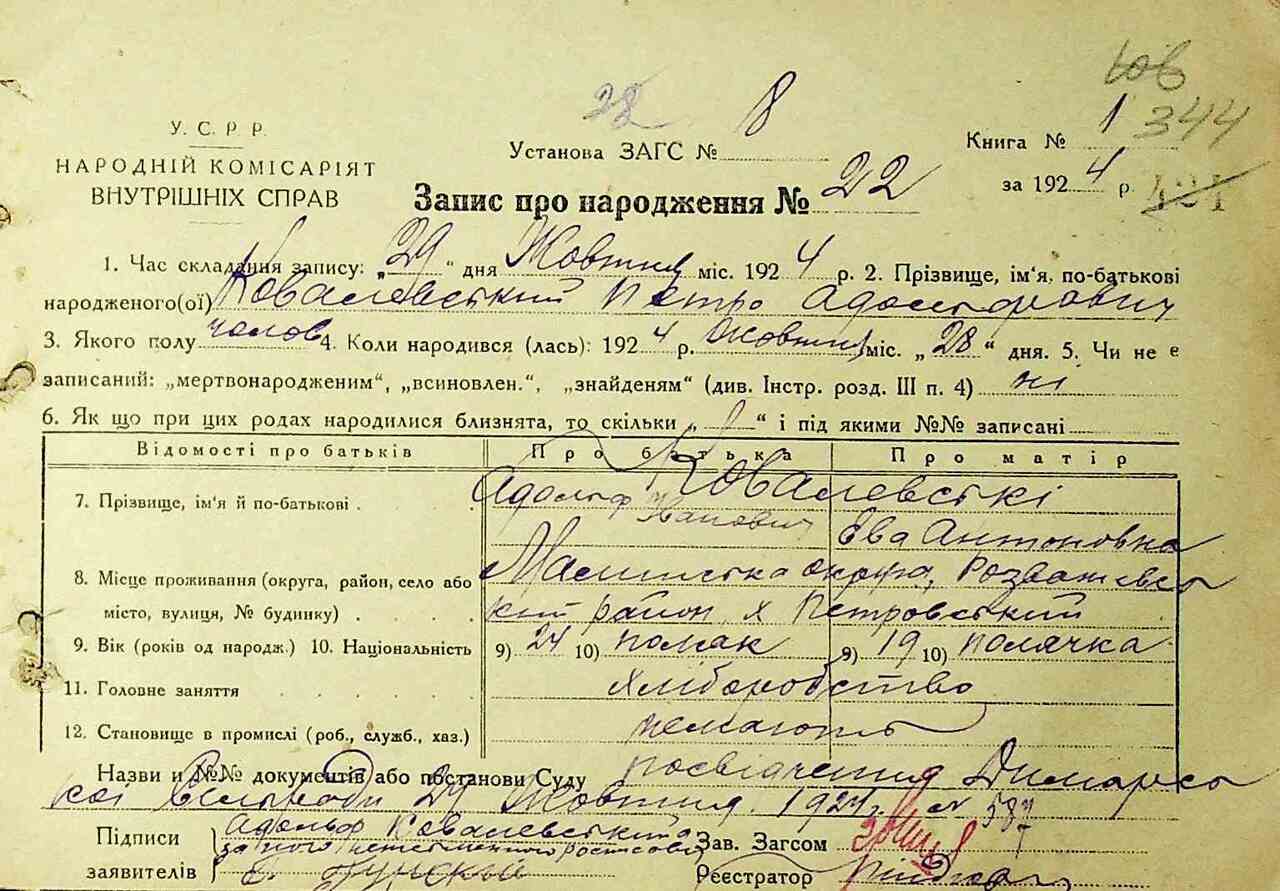 344
28 8
У. С. Р. Р.
НАРОДНІЙ КОМІСАРІЯТ
ВНУТРІШНІХ СПРАВ
Установа ЗАГС №
Книга № 1
Запис про народження № 22
за 1924 р.
1. Час складання запису: „29“ дня Жовтня міс. 1924 р. 2. Прізвище, ім'я, по-батькові
народженого(ої) Ковалевський Петро Адольфович
3. Якого полу чолов 4. Коли народився (лась): 1924 р. Жовтня міс. „28“ дня. 5. Чи не є
записаний: „мертвонародженим“, „всиновлен.“, „знайденям“ (див. Інстр. розд. III п. 4) ні
6. Як що при цих родах народилися близнята, то скільки „ “ і під якими №№ записані
Відомості про батьків Про батька Про матір
Ковалевські
7. Прізвище, ім'я й по-батькові Адольф Іванович Ева Антоновна
8. Місце проживання (округа, район, село або Малинська округа, Розважевсь
місто, вулиця, № будинку) кий район х Петровський
9. Вік (років од народж.) 10. Національність 9) 24 10) поляк 9) 19 10) полячка
11. Головне заняття хліборобство
12. Становище в промислі (роб., служб., хаз.)
Назви и №№ документів або постанови Суду посвідчення Димарсь
кої Сільради 29 Жовтня 1924 р № 587
Підписи Адольф Ковалевський Зав. Загсом
за його неписьменного росписовся
заявителів Реєстратор